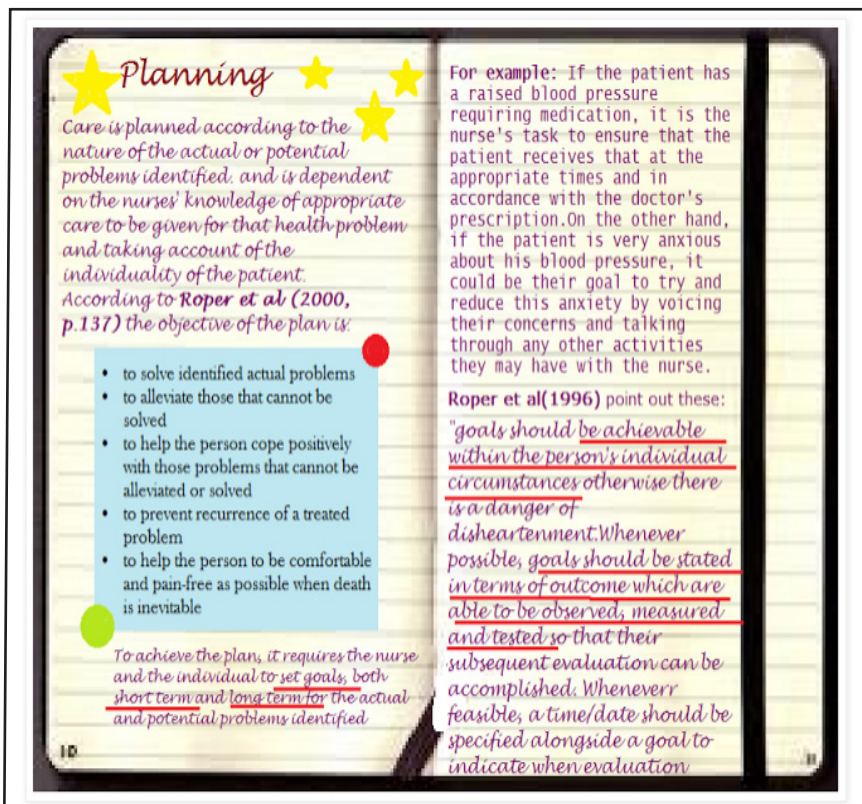 Planning
Care is planned according to the
nature of the actual or potential
problems identified. and is dependent
on the nurses' knowledge of appropriate
care to be given for that health problem
and taking account of the
individuality of the patient.
According to Roper et al (2000,
p.137) the objective of the plan is:
• to solve identified actual problems
• to alleviate those that cannot be
solved
• to help the person cope positively
with those problems that cannot be
alleviated or solved
• to prevent recurrence of a treated
problem
• to help the person to be comfortable
and pain-free as possible when death
is inevitable
To achieve the plan, it requires the nurse
and the individual to set goals, both
short term and long term for the actual
and potential problems identified
10
For example: If the patient has
a raised blood pressure
requiring medication, it is the
nurse's task to ensure that the
patient receives that at the
appropriate times and in
accordance with the doctor's
prescription.On the other hand,
if the patient is very anxious
about his blood pressure, it
could be their goal to try and
reduce this anxiety by voicing
their concerns and talking
through any other activities
they may have with the nurse.
Roper et al(1996) point out these:
"goals should be achievable
within the person's individual
circumstances otherwise there
is a danger of
disheartenment.Whenever
possible, goals should be stated
in terms of outcome which are
able to be observed, measured
and tested so that their
subsequent evaluation can be
accomplished. Wheneverr
feasible, a time/date should be
specified alongside a goal to
indicate when evaluation
11